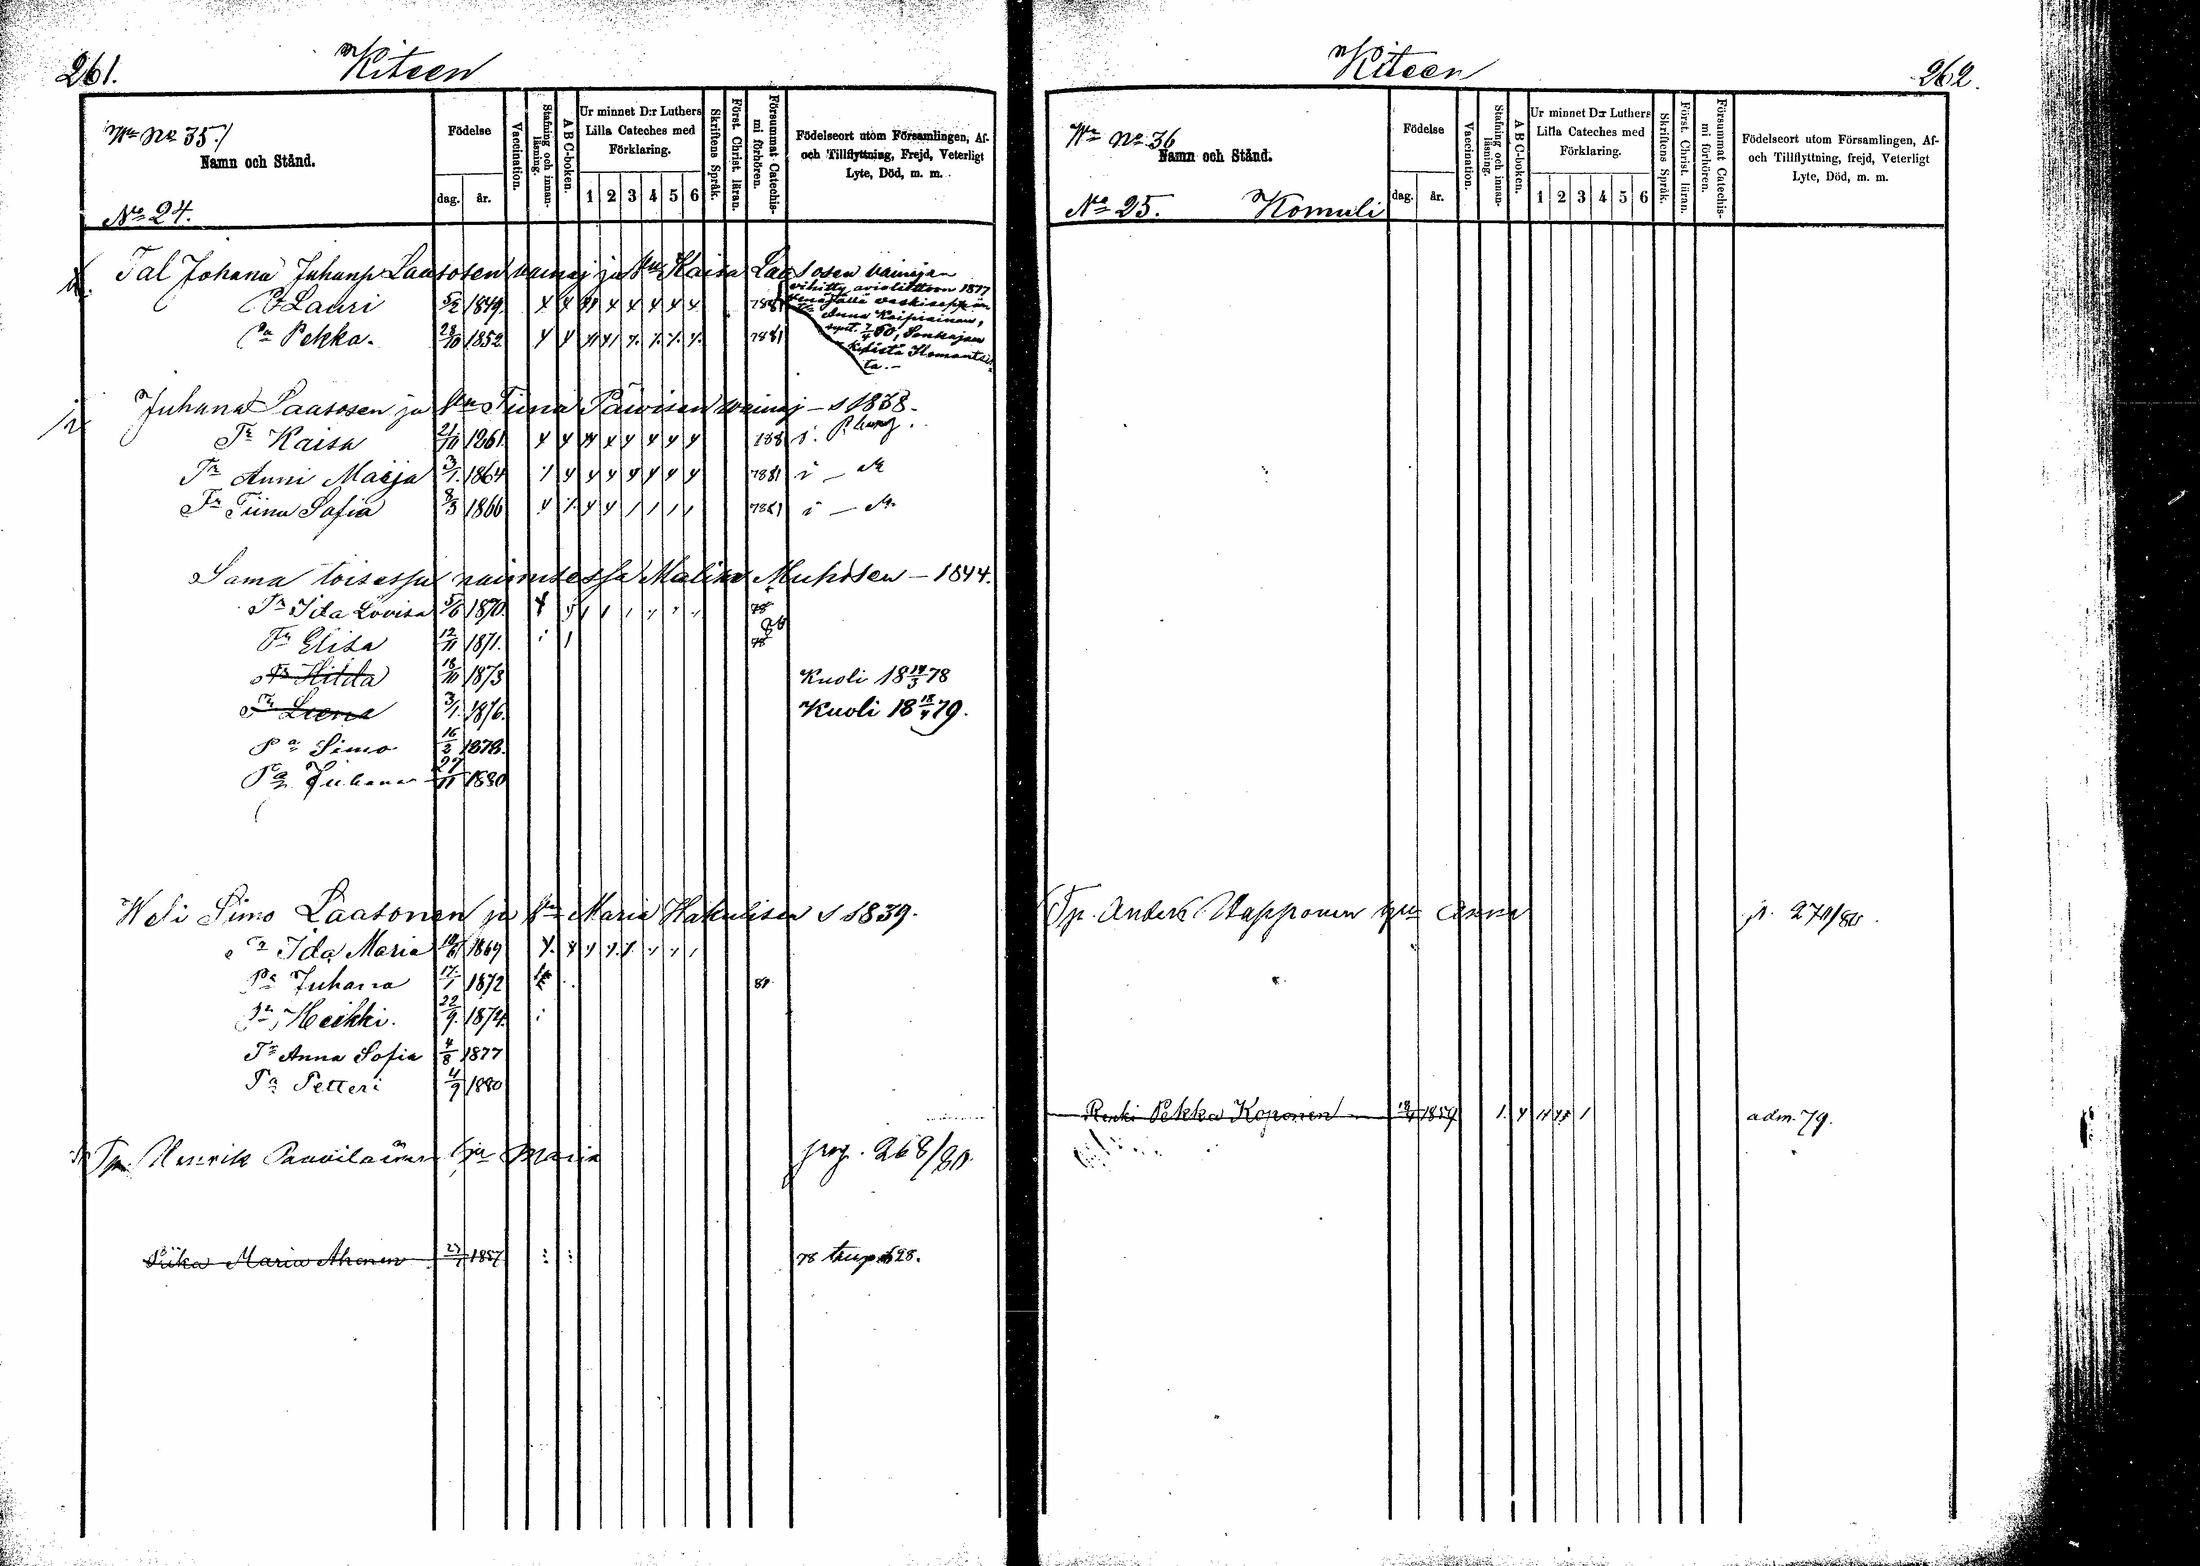 261.
Kiteen
Wa No 35.
Namn och Stånd.
No 24.
Födelse
dag. år.
Vaccination.
Stafning och innanläsning.
A B C-boken.
Ur minnet D:r Luthers Lilla Cateches med Förklaring.
1 2 3 4 5 6
Skriftens Språk.
Först. Christ. läran.
Försummat Catechismi förhören.
Födelseort utom Församlingen, Af- och Tillflyttning, Frejd, Veterligt Lyte, Död, m. m.
Tal Johana Juhanp Laasosen vainaj ja Kaisa Laasosen vainajan
Pa Lauri 5/2 1849. 7881
vihitty avioliittoon 1877
Anna Kaipiainen,
Pa Pekka. 28/10 1852 7881
Juhana Laasosen ja Tiina Päivisen vainaj - s 1838.
Tr Kaisa 21/10 1861 188
Tr Anni Maija 3/1 1864 7881
Tr Tiina Sofia 8/3 1866 7881
Sama toisessa naimisessa Malin Muhosen - 1844.
Tr Ida Lovisa 5/6 1870. 78
Tr Elisa 12/11 1871. 78
Tr Hilda 18/10 1873 Kuoli 18 14/3 78
Tr Liena 3/1 1876. Kuoli 18 18/4 79.
Pa Simo 16/2 1878.
Pa Juhana 27/11 1880
Weli Simo Laasonen ja Maria Hakulisen s 1839.
Tr Ida Maria 1869
Pa Juhana 17/1 1872 81
Pa Heikki. 22/9 1874.
Tr Anna Sofia 4/8 1877
Pa Petteri 4/9 1880
Henrik Paavilainen Maria 268/80.
Piika Maria Ahonen 1857 78
262.
Kiteen
Wa No 36
Namn och Stånd.
No 25. Komuli
Födelse
dag. år.
Vaccination.
Stafning och innanläsning.
A B C-boken.
Ur minnet D:r Luthers Lilla Cateches med Förklaring.
1 2 3 4 5 6
Skriftens Språk.
Först. Christ. läran.
Försummat Catechismi förhören.
Födelseort utom Församlingen, Af- och Tillflyttning, frejd, Veterligt Lyte, Död, m. m.
Tp. Anders Happonen Anna
Renki Pekka Koponen 1859 adm. 79.